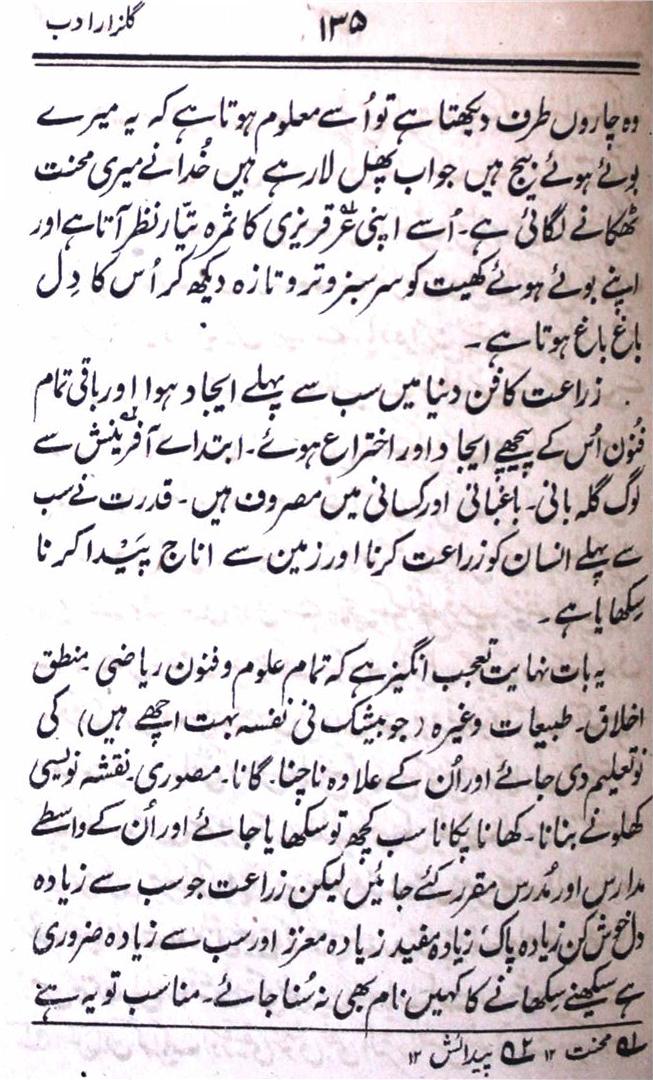 گلزار ادب
۱۳۵
وہ چاروں طرف دیکھتا ہے تو اُسے معلوم ہوتا ہے کہ یہ میرے
بوئے ہوئے بیج ہیں۔ جو اب پھل لارہے ہیں خُدا نے میری محنت
ٹھکانے لگائی ہے۔ اُسے اپنی عرقریزی کا ثمرہ تیّار نظر آتا ہے اور
اپنے بوئے ہوئے کھیت کو سرسبز و تر و تازہ دیکھ کر اُس کا دِل
باغ باغ ہوتا ہے۔
زراعت کا فن دنیا میں سب سے پہلے ایجاد ہوا اور باقی تمام
فنُون اُس کے پیچھے ایجاد اور اختراع ہوئے۔ ابتداے آفرینش سے
لوگ گلہ بانی۔ باغبانی اور کسانی میں مصروف ہیں۔ قدرت نے سب
سے پہلے انسان کو زراعت کرنا اور زمین سے اناج پَیدا کرنا
سِکھایا ہے۔
یہ بات نہایت تعجب انگیز ہے کہ تمام علوم و فنون ریاضی۔ منطق
اخلاق۔ طبیعات وغیرہ (جو بیشک فی نفسہ بہت اچھے ہیں) کی
تو تعلیم دی جائے اور اُن کے علاوہ ناچنا۔ گانا۔ مصوری۔ نقشہ نویسی
کھلونے بنانا۔ کھانا پکانا سب کچھ تو سکھایا جائے اور اُن کے واسطے
مدارس اور مُدرس مقرر کئے جائیں لیکن زراعت جو سب سے زیادہ
دل خوش کن زیادہ پاک زیادہ مفید زیادہ معزز اور سب سے زیادہ ضروری
ہے سیکھنے سکھانے کا کہیں نام بھی نہ سُنا جائے۔ مناسب تو یہ ہے
۱؎ محنت ۱۲ ۲؎ پیدائش ۱۲